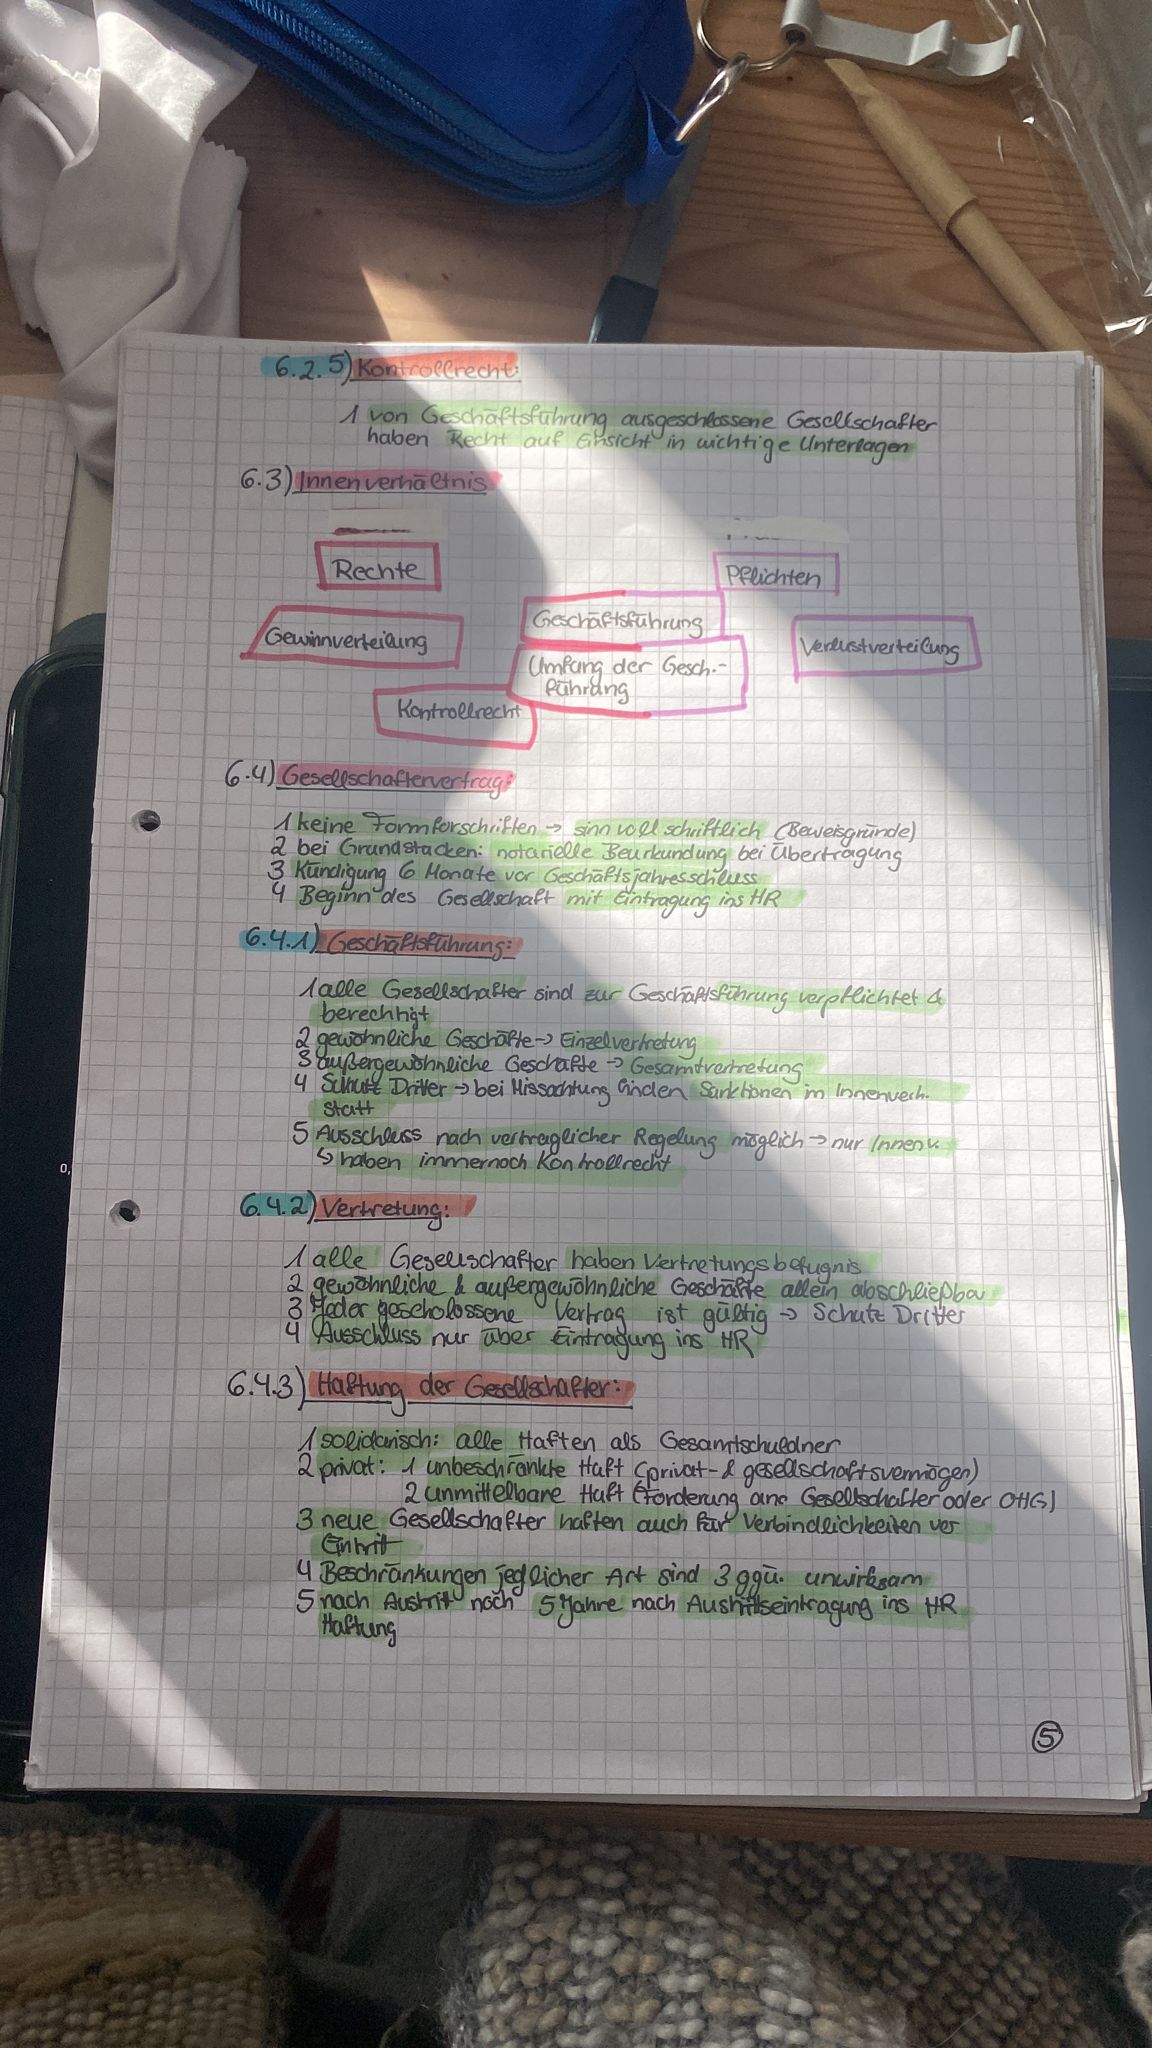 6.2.5) Kontrollrecht:
1 von Geschäftsführung ausgeschlossene Gesellschafter
haben Recht auf Einsicht in wichtige Unterlagen
6.3) Innenverhältnis
Rechte
Pflichten
Gewinnverteilung
Geschäftsführung
Verlustverteilung
Umfang der Gesch.-
führung
Kontrollrecht
6.4) Gesellschaftervertrag:
1 keine Formforschriften → sinnvoll schriftlich (Beweisgründe)
2 bei Grundstücken: notarielle Beurkundung bei Übertragung
3 Kündigung 6 Monate vor Geschäftsjahresschluss
4 Beginn des Gesellschaft mit Eintragung ins HR
6.4.1) Geschäftsführung:
1 alle Gesellschafter sind zur Geschäftsführung verpflichtet &
berechtigt
2 gewöhnliche Geschäfte → Einzelvertretung
3 außergewöhnliche Geschäfte → Gesamtvertretung
4 Schutz Dritter → bei Missachtung finden Sanktionen im Innenverh.
statt
5 Ausschluss nach vertraglicher Regelung möglich → nur Innenv.
↳ haben immernoch Kontrollrecht
6.4.2) Vertretung:
1 alle Gesellschafter haben Vertretungsbefugnis
2 gewöhnliche & außergewöhnliche Geschäfte allein abschließbar
3 Jeder gescholossene Vertrag ist gültig → Schutz Dritter
4 Ausschluss nur über Eintragung ins HR
6.4.3) Haftung der Gesellschafter:
1 solidarisch: alle Haften als Gesamtschuldner
2 privat: 1 unbeschränkte Haft (privat- & gesellschaftsvermögen)
2 unmittelbare Haft (Forderung an Gesellschafter oder OHG)
3 neue Gesellschafter haften auch für Verbindlichkeiten vor
Eintritt
4 Beschränkungen jeglicher Art sind 3 ggü. unwirksam
5 nach Austritt noch 5 Jahre nach Austrittseintragung ins HR
Haftung
5